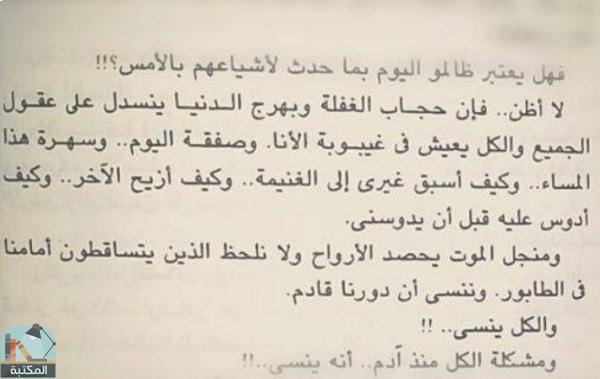 فهل يعتبر ظالمو اليوم بما حدث لأشياعهم بالأمس؟!!
لا أظن.. فإن حجاب الغفلة وبهرج الدنيا ينسدل على عقول
الجميع والكل يعيش فى غيبوبة الأنا. وصفقة اليوم.. وسهرة هذا
المساء.. وكيف أسبق غيرى إلى الغنيمة.. وكيف أزيح الآخر.. وكيف
أدوس عليه قبل أن يدوسنى.
ومنجل الموت يحصد الأرواح ولا نلحظ الذين يتساقطون أمامنا
فى الطابور. وننسى أن دورنا قادم.
والكل ينسى.. !!
ومشكلة الكل منذ آدم.. أنه ينسى..!!
المكتبة